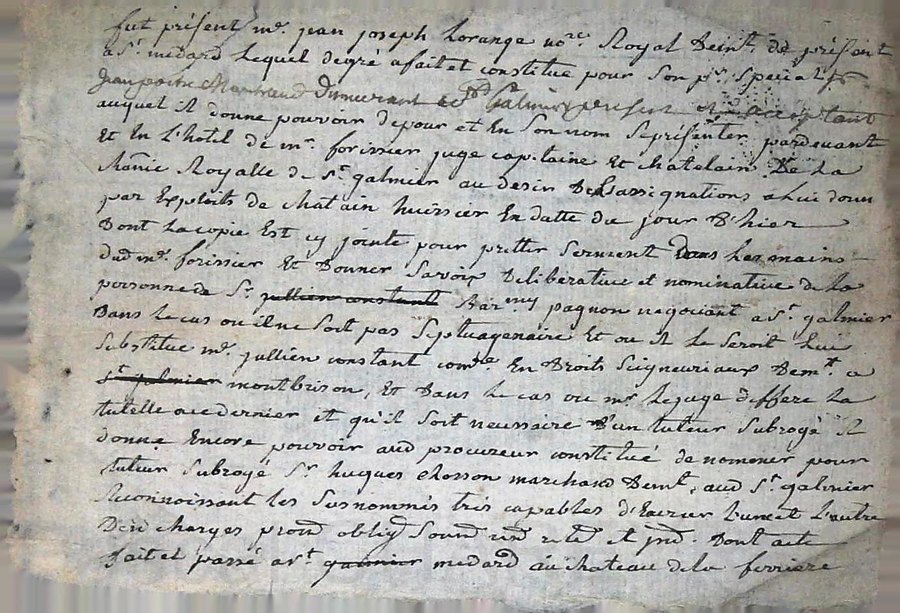 fut présent mr. jean joseph Lorange nore. Royal Demt. de présent
a St. medard Lequel degré a fait et constitue pour son pr. special
jean
auquel il donne pouvoir de pour et En Son nom Représenter pardevant
Et En L'hotel de mr. forissier juge capitaine Et chatelain De La
Royalle de St. galmier au desir Des assignations a Lui donné
par Exploits de chatain huissier En datte du jour D'hier
Dont La copie Est cy jointe pour pretter Serment Dans Les mains
dud mr. forissier Et Donner Savoix Deliberative et nominative de La
personne de Sr. jullien constant Barmy pagnon negociant a St. galmier
Dans Le cas ou il ne Soit pas Septuagenaire Et ou il Le Seroit Lui
Substitue mr. jullien constant comre En Droits Seigneuriaux Demt. a
St. galmier montbrison, Et Dans Le cas ou mr. Le juge differe La
tutelle a ce dernier et qu'il Soit necessaire D'un tuteur Subrogé Il
donne Encore pouvoir aud procureur constitué de nommer pour
tuteur Subrogé Sr. hugues chosson marchand Demt. aud St. galmier
Reconnoissant Les Susnommés tres capables d'Exercer L'une et L'autre
Des charges prom oblig Soum et Dont acte
fait et passé a St. galmier medard au chateau de la ferriere